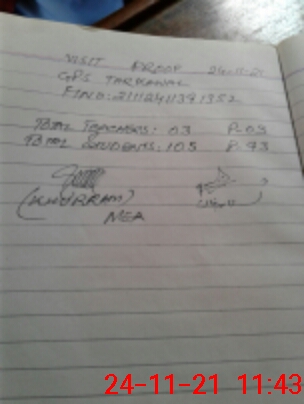 VISIT PROOF 24-11-21
GPS TARKAWAL
TOTAL TEACHERS: 03 P. 03
TOTAL STUDENTS: 105 P. 93
(KHURRAM)
MEA
24-11-21 11:43